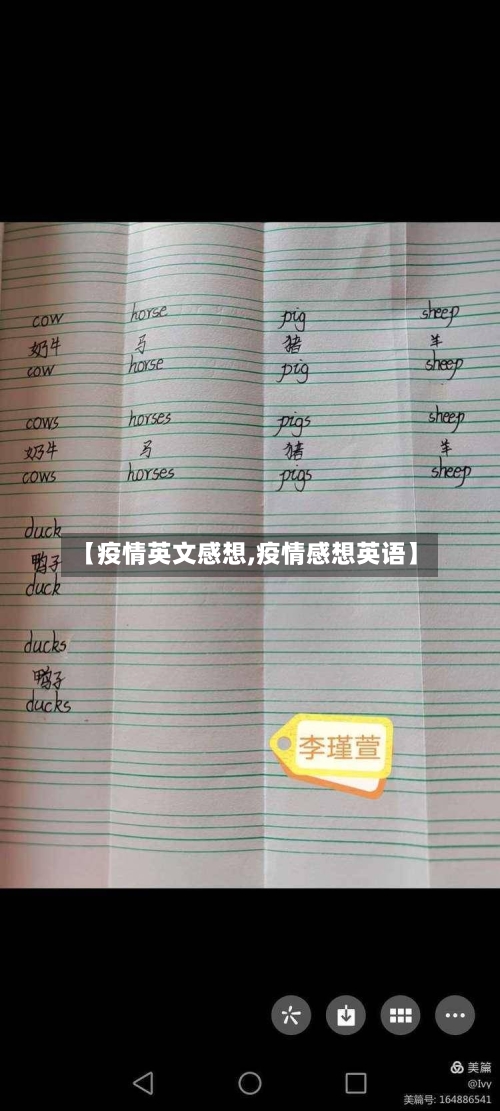 cow horse pig sheep
奶牛 马 猪 羊
cow horse pig sheep
cows horses pigs sheep
奶牛 马 猪 羊
cows horses pigs sheep
duck
【疫情英文感想,疫情感想英语】
鸭子
duck
ducks
鸭子
ducks
李瑾萱
美篇
@Ivy
美篇号: 164886541